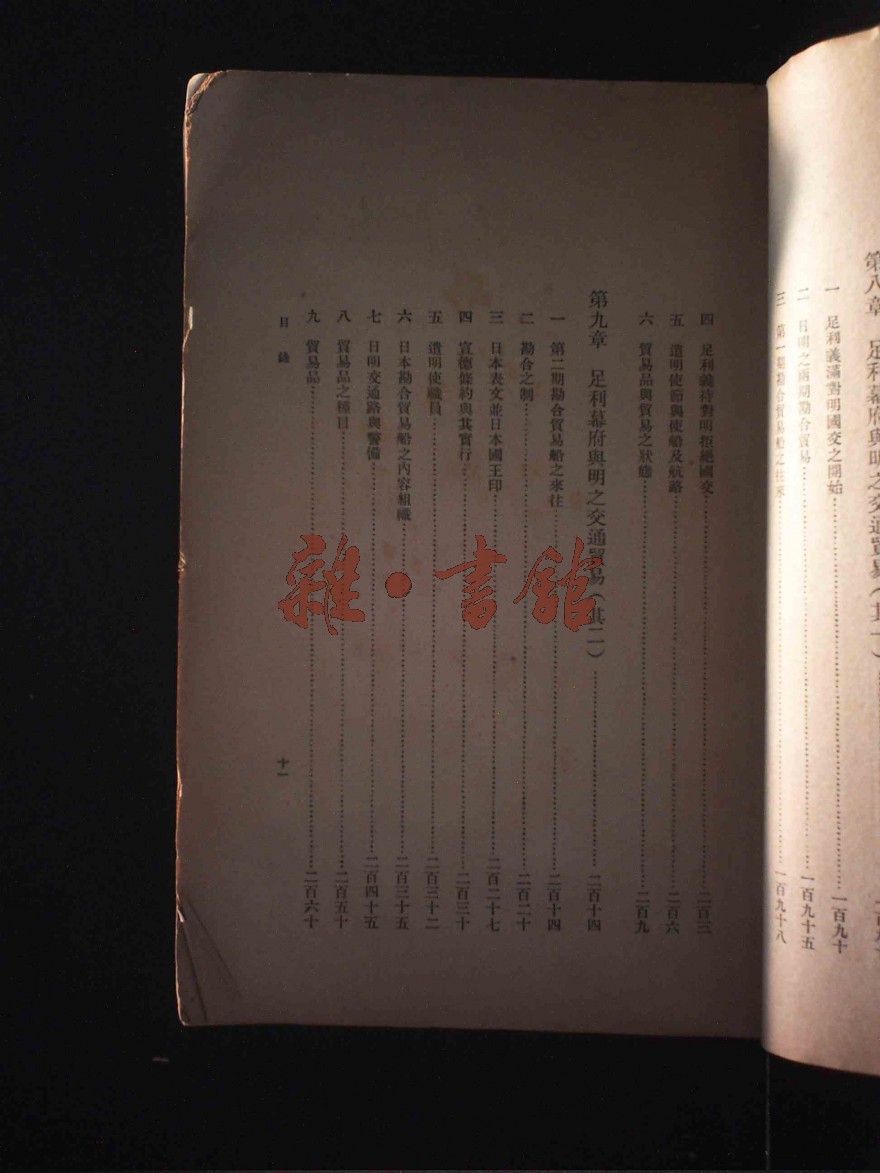 第八章　足利幕府與明之交通貿易(其一)
一　足利義滿對明國交之開始……一百九十
二　日明之兩期勘合貿易……一百九十五
三　第一期勘合貿易船之往來……一百九十八
四　足利義持對明拒絕國交……二百三
五　遣明使節與使船及航路……二百六
六　貿易品與貿易之狀態……二百九
第九章　足利幕府與明之交通貿易(其二)……二百十四
一　第二期勘合貿易船之來往……二百十四
二　勘合之制……二百二十
三　日本表文並日本國王印……二百二十七
四　宣德條約與其實行……二百三十
五　遣明使職員……二百三十二
六　日本勘合貿易船之內容組織……二百三十五
七　日明交通路與警備……二百四十五
八　貿易品之種目……二百五十
九　貿易品……二百六十
目錄
十一
雜·書館